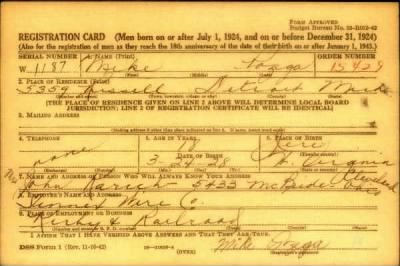 FORM APPROVED
REGISTRATION CARD (Men born on or after July 1, 1924, and on or before December 31, 1924)
(Also for the registration of men as they reach the 18th anniversary of the date of their birth on or after January 1, 1943.)
SERIAL NUMBER 1. NAME (Print) ORDER NUMBER
W 1187 Mike 15429
2. PLACE OF RESIDENCE (Print)
5359 Russell Detroit Mich
(THE PLACE OF RESIDENCE GIVEN ON LINE 2 ABOVE WILL DETERMINE LOCAL BOARD
JURISDICTION; LINE 2 OF REGISTRATION CERTIFICATE WILL BE IDENTICAL)
3. MAILING ADDRESS
4. TELEPHONE 5. AGE IN YEARS 6. PLACE OF BIRTH
none 18
DATE OF BIRTH
W. Virginia
7. NAME AND ADDRESS OF PERSON WHO WILL ALWAYS KNOW YOUR ADDRESS
John 5433 McBride Cleveland
8. EMPLOYER'S NAME AND ADDRESS
Wire Co.
9. PLACE OF EMPLOYMENT OR BUSINESS
Kirby & Railroad
I AFFIRM THAT I HAVE VERIFIED ABOVE ANSWERS AND THAT THEY ARE TRUE.
DSS Form 1 (OVER) Mike